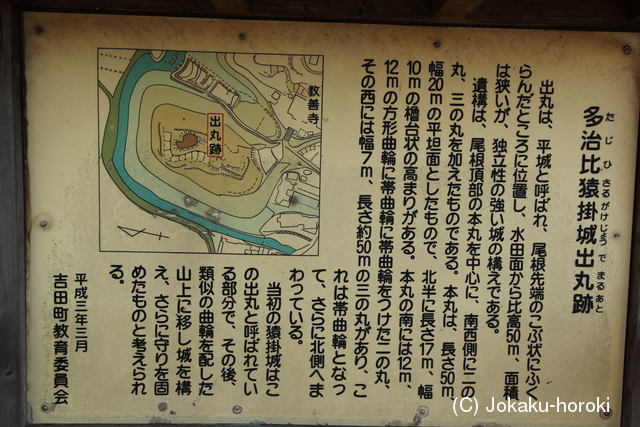 たじひさるがけじょうでまるあと
多治比猿掛城出丸跡
出丸は、平城と呼ばれ、尾根先端のこぶ状にふく
らんだところに位置し、水田面から比高50m、面積
は狭いが、独立性の強い城の構えである。
遺構は、尾根頂部の本丸を中心に、南西側に二の
丸、三の丸を加えたものである。本丸は、長さ50m、
幅20mの平坦面としたもので、北半に長さ17m、幅
10mの櫓台状の高まりがある。本丸の南には12m、
12mの方形曲輪に帯曲輪に帯曲輪をつけた二の丸、
その西には幅7m、長さ約50mの三の丸があり、こ
れは帯曲輪となっ
て、さらに北側へま
わっている。
当初の猿掛城はこ
の出丸と呼ばれてい
る部分で、その後、
類似の曲輪を配した
山上に移し城を構
え、さらに守りを固
めたものと考えられ
る。
平成三年三月
吉田町教育委員会
教善寺
出丸跡
(C) Jokaku-horoki